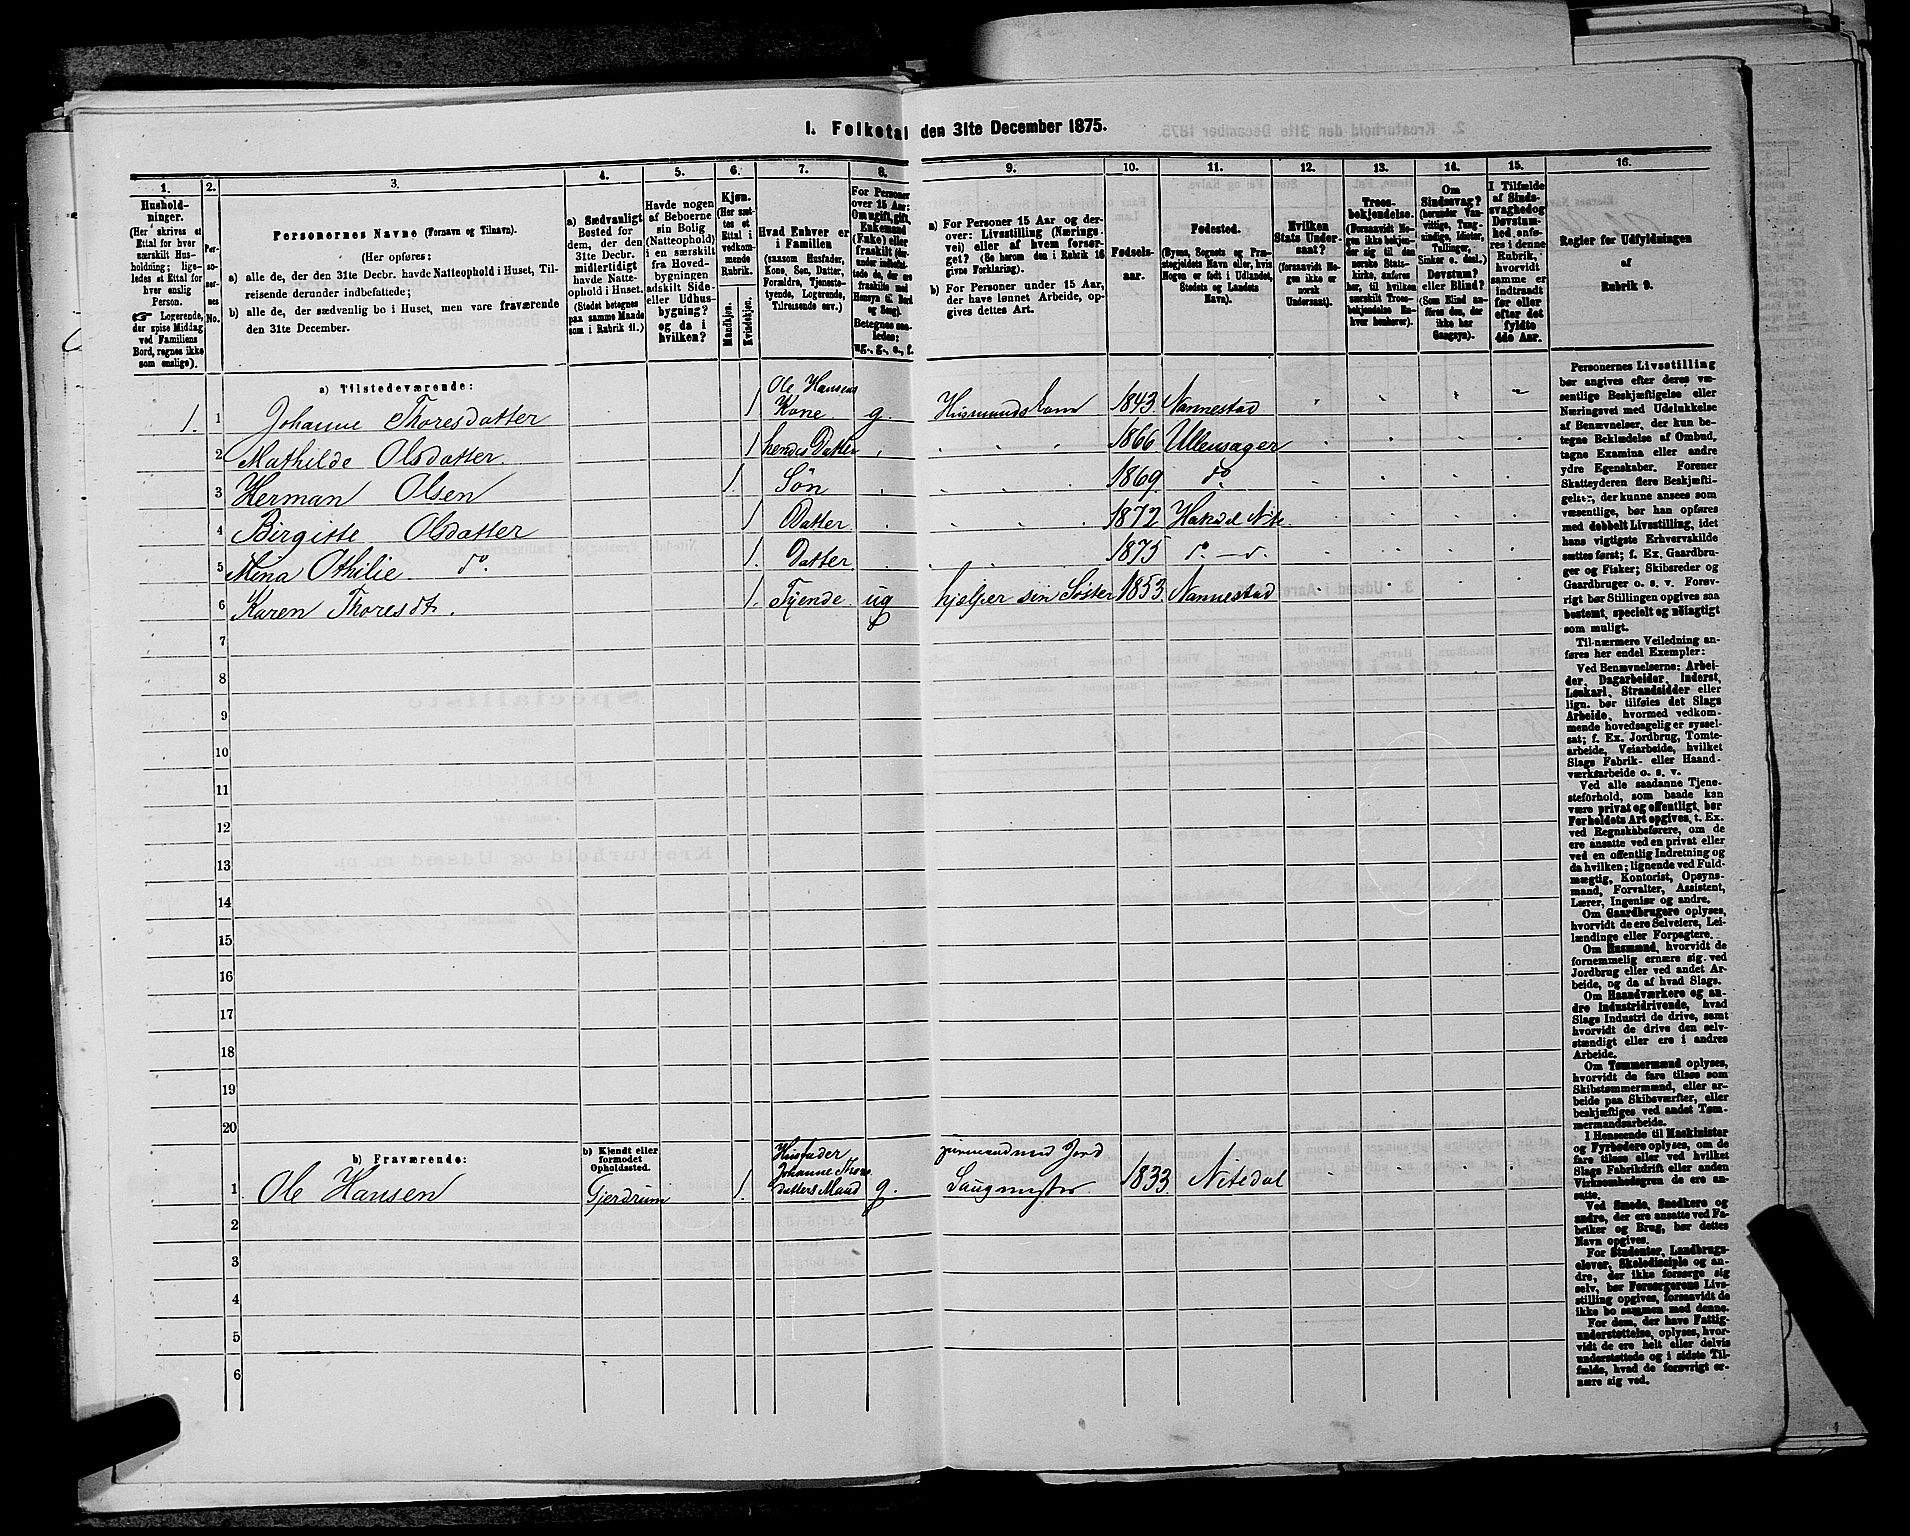 1. Folketal den 31te December 1875.
1. 2. 3. 4. 5. 6. 7. 8. 9. 10. 11. 12. 13. 14. 15. 16.
Hushold-
ninger.
(Her skrives et
Ettal for hver
særskilt Hus-
holdning; lige-
ledes et Ettal for
hver enslig
Person.
Logerende,
der spise Middag
ved Familiens
Bord, regnes ikke
som enslige).
Per-
so-
ner-
nes
No.
Personernes Navne (Fornavn og Tilnavn).
(Her opføres:
a) alle de, der den 31te Decbr. havde Natteophold i Huset, Til-
reisende derunder indbefattede;
b) alle de, der sædvanlig bo i Huset, men vare fraværende
den 31te December.
a) Sædvanligt
Bosted for
dem, der den
31te Decbr.
midlertidigt
havde Natte-
ophold i Huset.
(Stedet betegnes
paa samme Maade
som i Rubrik 11.)
Havde nogen
af Beboerne
sin Bolig
(Natteophold)
i en særskilt
fra Hoved-
bygningen
adskilt Side-
eller Udhus-
bygning?
og da i
hvilken?
Kjøn.
(Her sæt-
tes et
Ettal i
vedkom-
mende
Rubrik.
Mandkjøn.
Kvindekjøn.
Hvad Enhver er
i Familien
(saasom Husfader,
Kone, Søn, Datter,
Forældre, Tjeneste-
tyende, Logerende,
Tilreisende osv.)
For Personer
over 15 Aar:
Om ugift, gift,
Enkemand
(Enke) eller
fraskilt
Betegnes saa-
ledes:
ug., g., e., f.
a) For Personer 15 Aar og der-
over: Livsstilling (Nærings-
vei) eller af hvem forsør-
get? (Se herom den i Rubrik 16
givne Forklaring).
b) For Personer under 15 Aar,
der have lønnet Arbeide, op-
gives dettes Art.
Fødsels-
aar.
Fødested.
(Byens, Sognets og Præ-
stegjeldets Navn eller, hvis
Nogen er født i Udlandet,
Stedets og Landets
Navn).
Hvilken
Stats Under-
saat?
(forsaavidt No-
gen ikke er
norsk
Undersaat).
Troes-
bekjendelse.
(Forsaavidt No-
gen ikke bekjen-
der sig til den
norske Stats-
kirke, anføres
her, til hvilken
særskilt Troes-
bekjendelse En-
hver henhører).
Om
Sindssvag?
(herunder Van-
vittige, Tung-
sindige, Idioter,
Tullinger,
Sinker o. desl.)
Døvstum?
eller Blind?
(Som Blind an-
føres den, der
ikke har
Gangsyn).
I Tilfælde
af Sinds-
svaghed og
Døvstum-
hed, anfø-
res i denne
Rubrik,
hvorvidt
samme er
indtraadt
før eller
efter det
fyldte
4de Aar.
Regler for Udfyldningen
af
Rubrik 9.
a) Tilstedeværende:
1. 1 Johanne Thoresdatter 1 Ole Hansens Kone g. Husmandskone 1843. Nannestad
2 Mathilde Olsdatter. 1 hendes Datter 1866 Ullensager
3 Herman Olsen 1. Søn 1869. do.
4 Birgitte Olsdatter 1 Datter 1872. Hakedal Nite.
5 Mina Othilie. do. 1. Datter. 1875 do. — do.
6 Karen Thoresdt. 1. Tyende ug hjælper sin Søster 1853. Nannestad
7
8
9
10
11
12
13
14
15
16
17
18
19
20
b) Fraværende:
b) Kjendt eller
formodet
Opholdssted.
1 Ole Hansen Gjerdrum 1. Husfader Johanne Thores datters Mand g. med Jord Saugmester 1833. Nitedal
2
3
4
5
6
Personernes Livsstilling
bør angives efter deres væ-
sentlige Beskjæftigelse eller
Næringsvei med Udelukkelse
af Benævnelser, der kun be-
tegne Beklædelse af Ombud,
tagne Examina eller andre
ydre Egenskaber. Forener
Skatteyderen flere Beskjæfti-
gelser, der kunne ansees som
væsentlige, bør han opføres
med dobbelt Livsstilling, idet
hans vigtigste Erhvervskilde
sættes først; f. Ex. Gaardbru-
ger og Fisker; Skibsreder og
Gaardbruger o. s. v. Forøv-
rigt bør Stillingen opgives saa
bestemt, specielt og nøiagtigt
som muligt.
Til nærmere Veiledning an-
føres her endel Exempler:
Ved Benævnelserne: Arbei-
der, Dagarbeider, Inderst,
Løskarl, Strandsidder eller
lign. bør tilføies det Slags
Arbeide, hvormed vedkom-
mende hovedsagelig er syssel-
sat; f. Ex. Jordbrug, Tomte-
arbeide, Veiarbeide, hvilket
Slags Fabrik- eller Haand-
værksarbeide o. s. v.
Ved alle saadanne Tjene-
steforhold, som baade kan
være privat og offentligt, bør
Forholdets Art opgives, t. Ex.
ved Regnskabsførere, om de
ere ansatte ved en privat eller
ved en offentlig Indretning og
da hvilken; lignende ved Fuld-
mægtig, Kontorist, Opsyns-
mand, Forvalter, Assistent,
Lærer, Ingeniør og andre.
Om Gaardbrugere oplyses,
hvorvidt de ere Selveiere, Lei-
lændinge eller Forpagtere.
Om Husmænd, hvorvidt de
fornemmelig ernære sig ved
Jordbrug eller ved andet Ar-
beide, og da af hvad Slags.
Om Haandværkere og an-
dre Industridrivende, hvad
Slags Industri de drive, samt
hvorvidt de drive den selv-
stændigt eller ere i andres
Arbeide.
Om Tømmermænd oplyses,
hvorvidt de fare tilsøs som
Skibstømmermænd, eller ar-
beide paa Skibsværfter, eller
beskjæftiges ved andet Tøm-
mermandsarbeide.
I Henseende til Maskinister
og Fyrbødere oplyses, om de
fare tilsøs eller ved hvilket
Slags Fabrikdrift eller anden
Virksomhedsgren de ere an-
satte.
Ved Smede, Snedkere og
andre, der ere ansatte ved Fa-
briker og Brug, bør dettes
Navn opgives.
For Studenter, Landbrugs-
elever, Skoledisciple og an-
dre, der ikke forsørge sig
selv, bør Forsørgerens Livs-
stilling opgives, forsaavidt de
ikke bo sammen med denne.
For dem, der have Fattig-
understøttelse, oplyses, hvor-
vidt de ere helt eller delvis
understøttede og i sidste Til-
fælde, hvad de forøvrigt er-
nære sig ved.